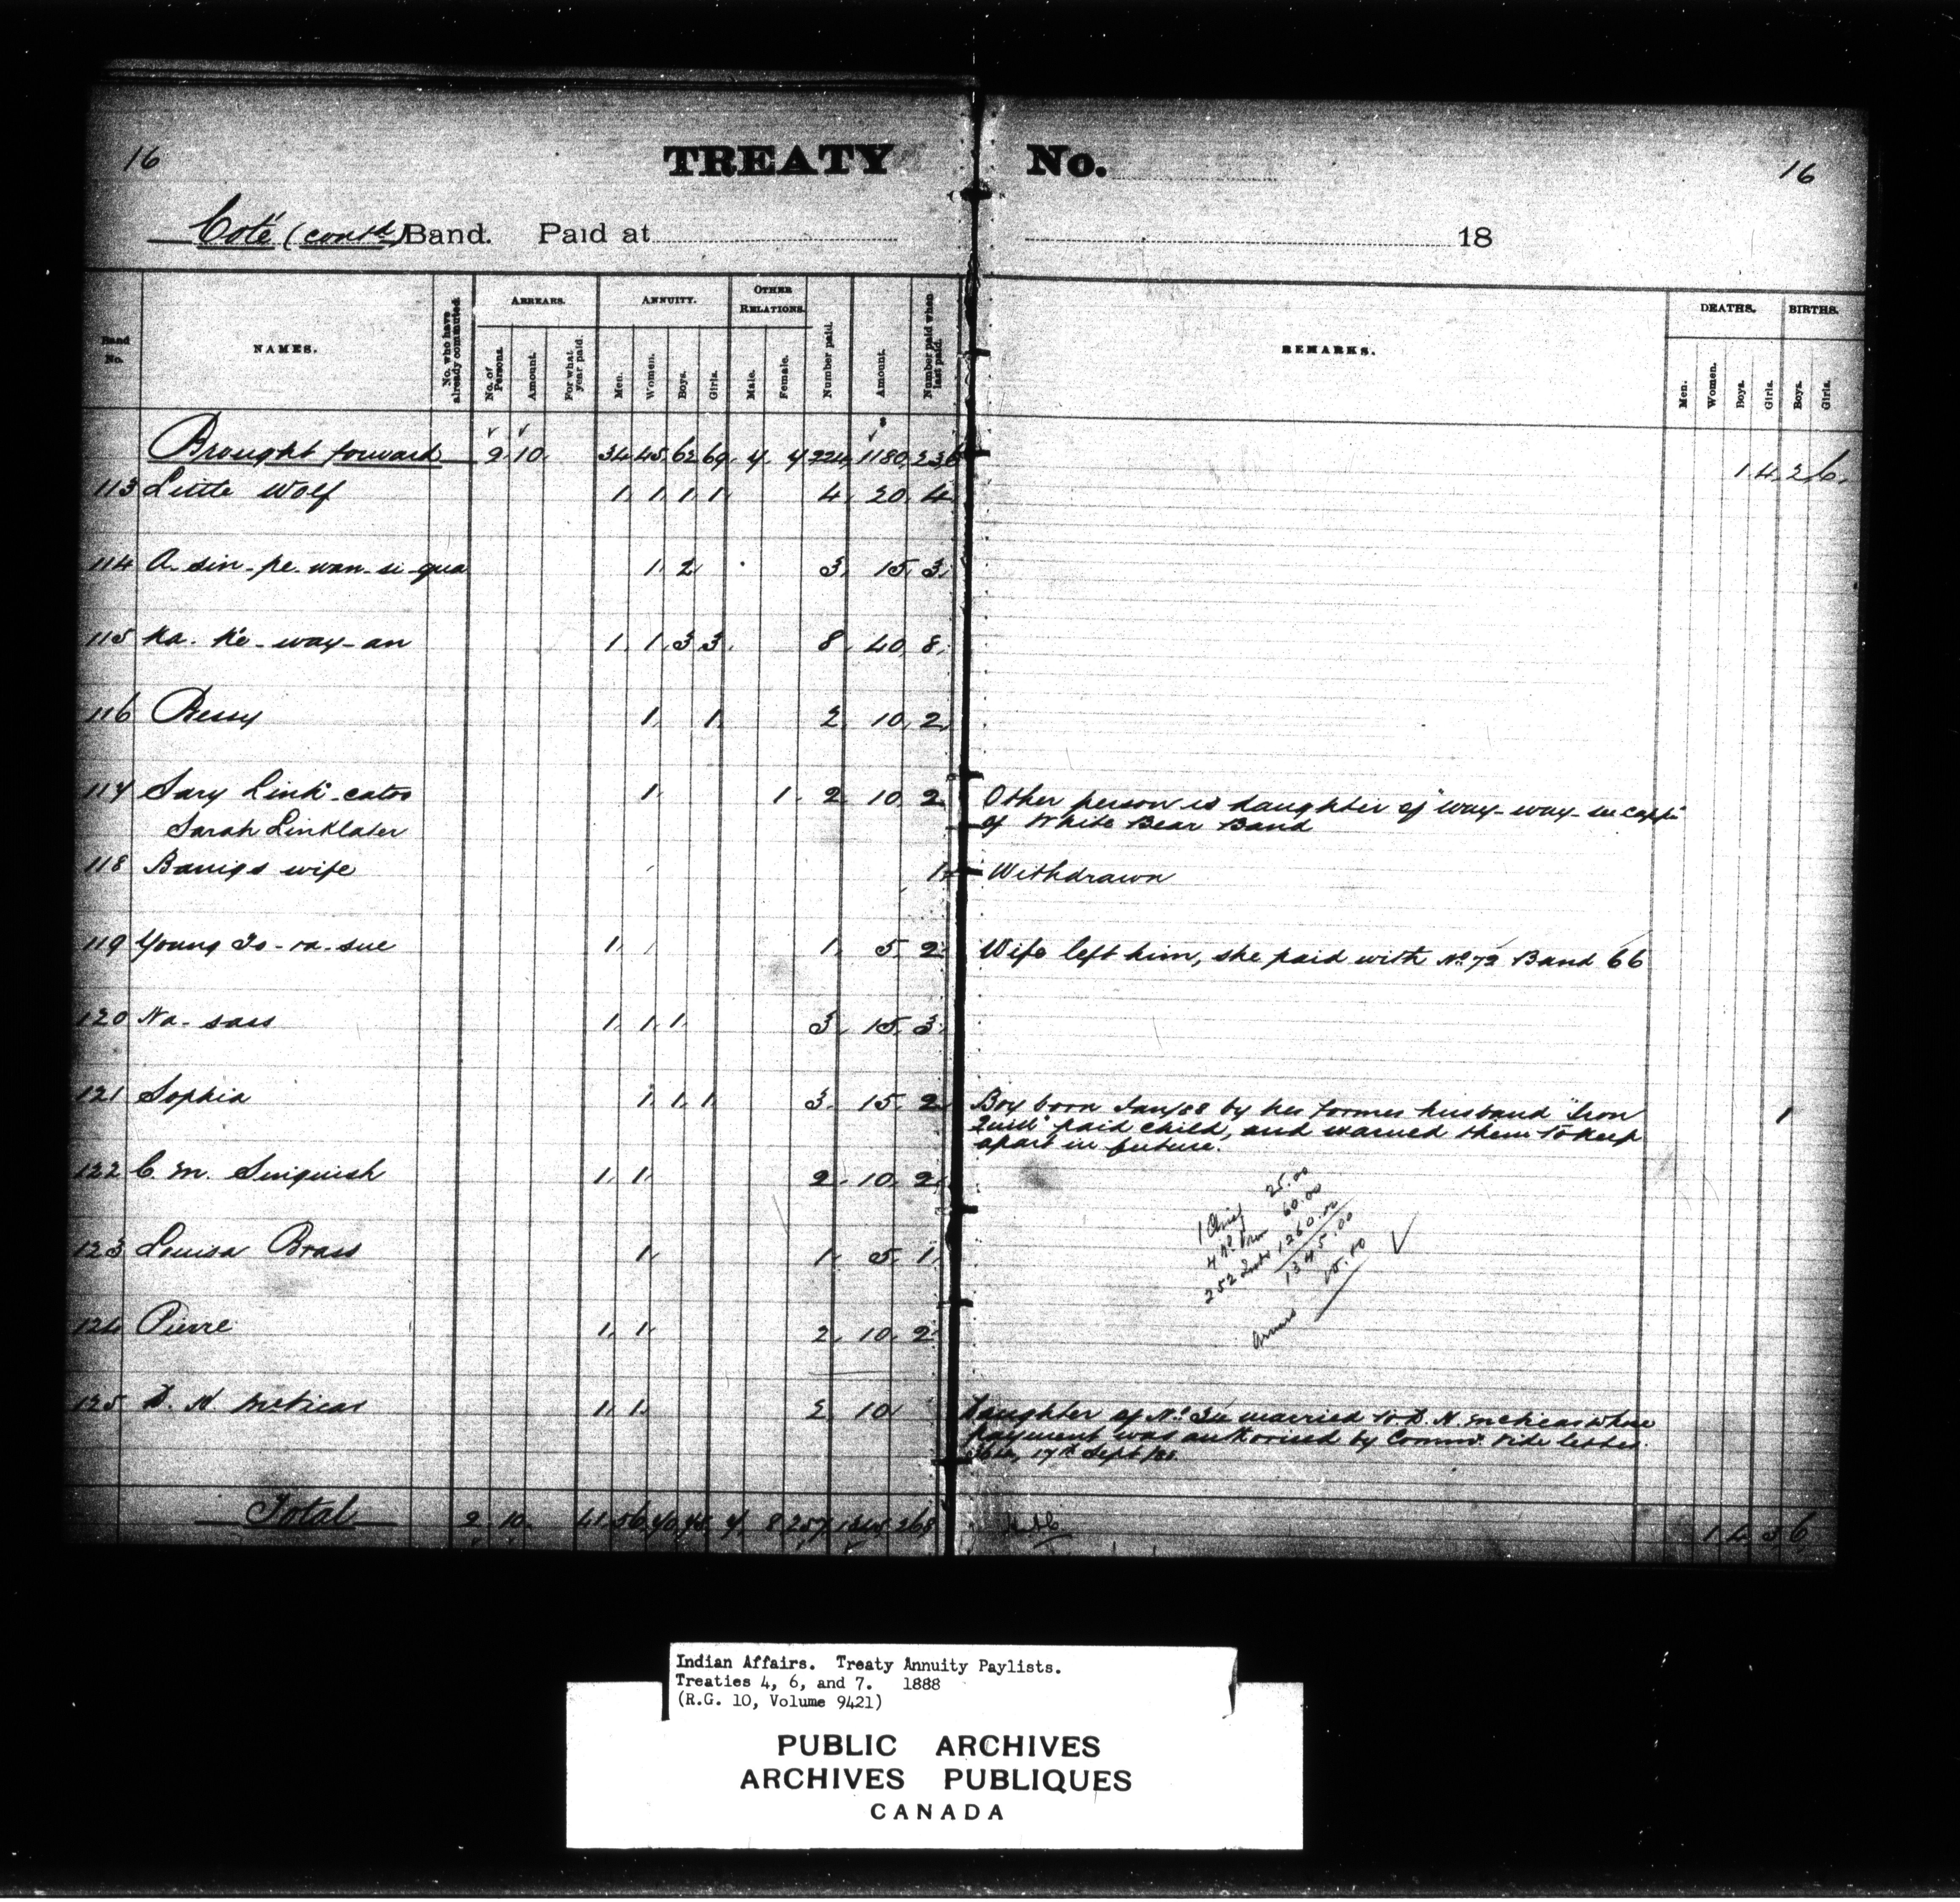 16
TREATY No.
16
Coté (contd) Band. Paid at 18
Band No. NAMES. No. who have already commuted. ARREARS. No. of Persons. Amount. For what year paid. ANNUITY. Men. Women. Boys. Girls. OTHER RELATIONS. Male. Female. Number paid. Amount. Number paid when last paid. REMARKS. DEATHS. Men. Women. Boys. Girls. BIRTHS. Boys. Girls.
Brought forward 2 10 34 45 62 69 4 224 1180 236 1 4 2 6
113 Little Wolf 1 1 1 1 4 20 4
114 A-sin-pe-wan-si-qua 1 2 3 15 3
115 Ka-Ke-way-an 1 1 3 3 8 40 8
116 Bessy 1 1 2 10 2
117 Sary Link-catos 1 1 2 10 2 Other person is daughter of "Way-way-
Sarah Linklater of White Bear Band
118 wife 1 Withdrawn
119 Young 1 1 5 2 Wife left him, she paid with No 72 Band 66
120 Na-sass 1 1 1 3 15 3
121 Sophia 1 1 1 3 15 2 Boy born Jan/88 by her former husband "Iron 1
Quill" paid child, and warned them to keep
apart in future.
122 C. M. Sinquish 1 1 2 10 2
1 Chief 25.00
4 60.00
252 Inds 1260.00
1345.00
Arrears 10.00
123 Louisa Brass 1 1 5 1
124 Pierre 1 1 2 10 2
125 D. N. McVicar 1 1 2 10 Daughter of No. married to D. N. McVicar whose
payment was authorised by Commr. vide letter
17th Sept/88
Total 2 10 41 56 70 75 8 257 1345 268 1 4 3 6
Indian Affairs. Treaty Annuity Paylists.
Treaties 4, 6, and 7. 1888
(R.G. 10, Volume 9421)
PUBLIC ARCHIVES
ARCHIVES PUBLIQUES
CANADA